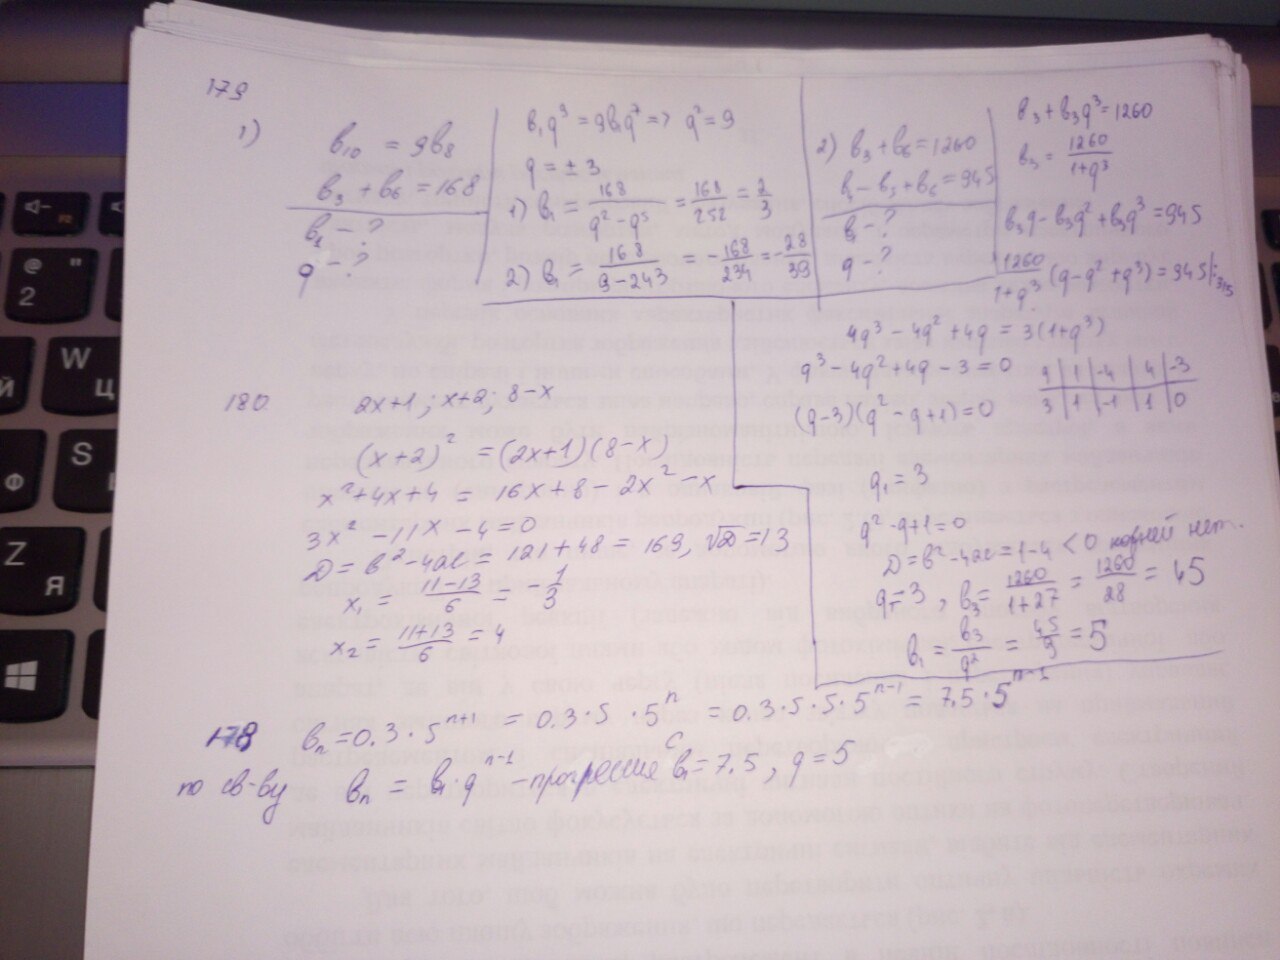 179
1)
b₁₀ = 9b₈
b₃ + b₆ = 168
b₁ - ?
q - ?
b₁q⁹ = 9b₁q⁷ => q² = 9
q = ± 3
1) b₁ = 168/(q² - q⁵) = 168/252 = 2/3
2) b₁ = 168/(9 - 243) = - 168/234 = - 28/39
2) b₃ + b₆ = 1260
b₄ - b₅ + b₆ = 945
b₁ - ?
q - ?
b₃ + b₃q³ = 1260
b₃ = 1260/(1+q³)
b₃q - b₃q² + b₃q³ = 945
1260/(1+q³) (q - q² + q³) = 945 |: 315
4q³ - 4q² + 4q = 3(1+q³)
q³ - 4q² + 4q - 3 = 0
q | 1 | -4 | 4 | -3
3 | 1 | -1 | 1 | 0
(q-3)(q² - q + 1) = 0
q₁ = 3
q² - q + 1 = 0
D = b² - 4ac = 1 - 4 < 0 корней нет.
q = 3, b₃ = 1260/(1+27) = 1260/28 = 45
b₁ = b₃/q² = 45/9 = 5
180
2x+1; x+2; 8-x
(x+2)² = (2x+1)(8-x)
x² + 4x + 4 = 16x + 8 - 2x² - x
3x² - 11x - 4 = 0
D = b² - 4ac = 121 + 48 = 169, √D = 13
x₁ = (11-13)/6 = - 1/3
x₂ = (11+13)/6 = 4
178 bₙ = 0.3 · 5ⁿ⁺¹ = 0.3 · 5 · 5ⁿ = 0.3 · 5 · 5 · 5ⁿ⁻¹ = 7.5 · 5ⁿ⁻¹
по св-ву bₙ = b₁ · qⁿ⁻¹ - прогрессия с b₁ = 7.5, q = 5
@ " 2
W Ц
Й
S
Ф
Z Я